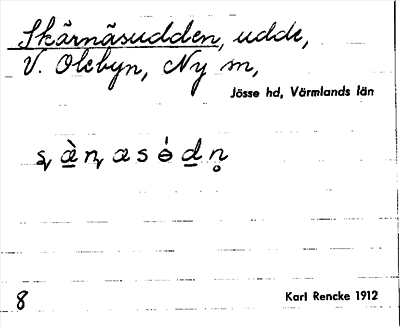 Skärnäsudden, udde,
V. Olebyn, Ny sn,
Jösse hd, Värmlands län
Karl Rencke 1912
8